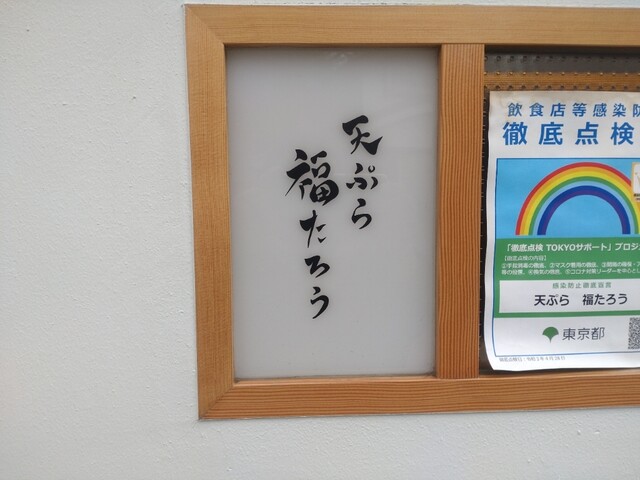 天ぷら
福たろう
飲食店等感染防
徹底点検
「徹底点検 TOKYOサポート」プロジ
感染防止徹底宣言
天ぷら 福たろう
東京都